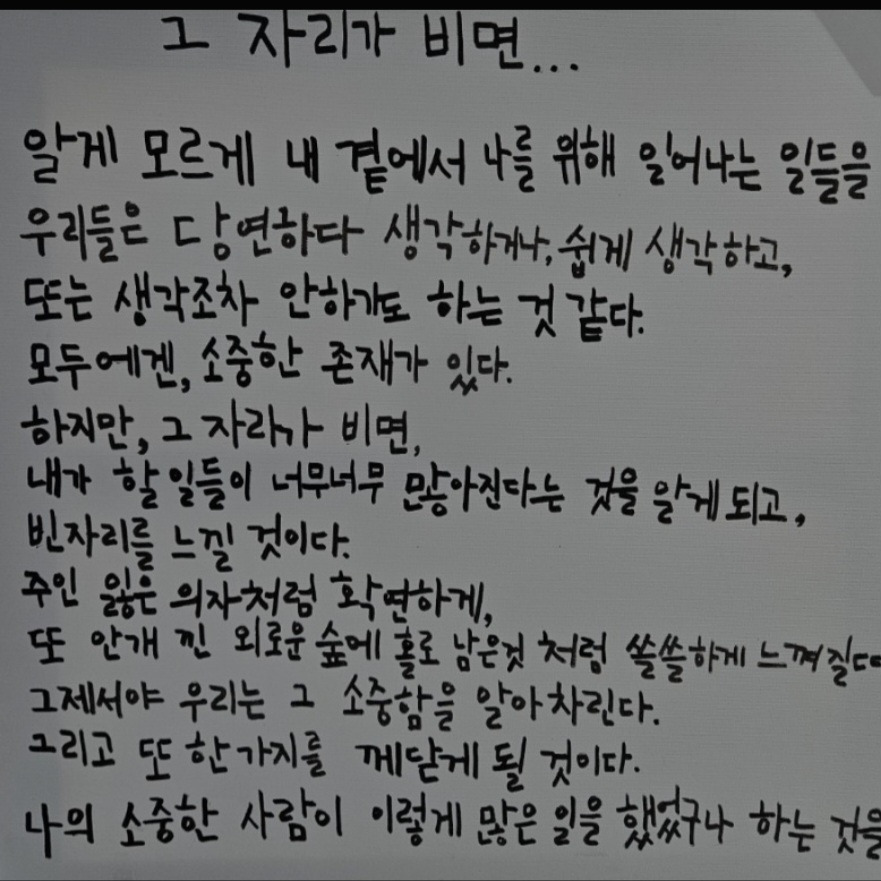 그 자리가 비면...
알게 모르게 내 곁에서 나를 위해 일어나는 일들을
우리들은 당연하다 생각하거나, 쉽게 생각하고,
또는 생각조차 안하기도 하는 것 같다.
모두에겐, 소중한 존재가 있다.
하지만, 그 자리가 비면,
내가 할 일들이 너무너무 많아진다는 것을 알게 되고,
빈자리를 느낄 것이다.
주인 잃은 의자처럼 확연하게,
또 안개 낀 외로운 숲에 홀로 남은것 처럼 쓸쓸하게 느껴질때
그제서야 우리는 그 소중함을 알아차린다.
그리고 또 한가지를 깨닫게 될 것이다.
나의 소중한 사람이 이렇게 많은 일을 했었구나 하는 것을